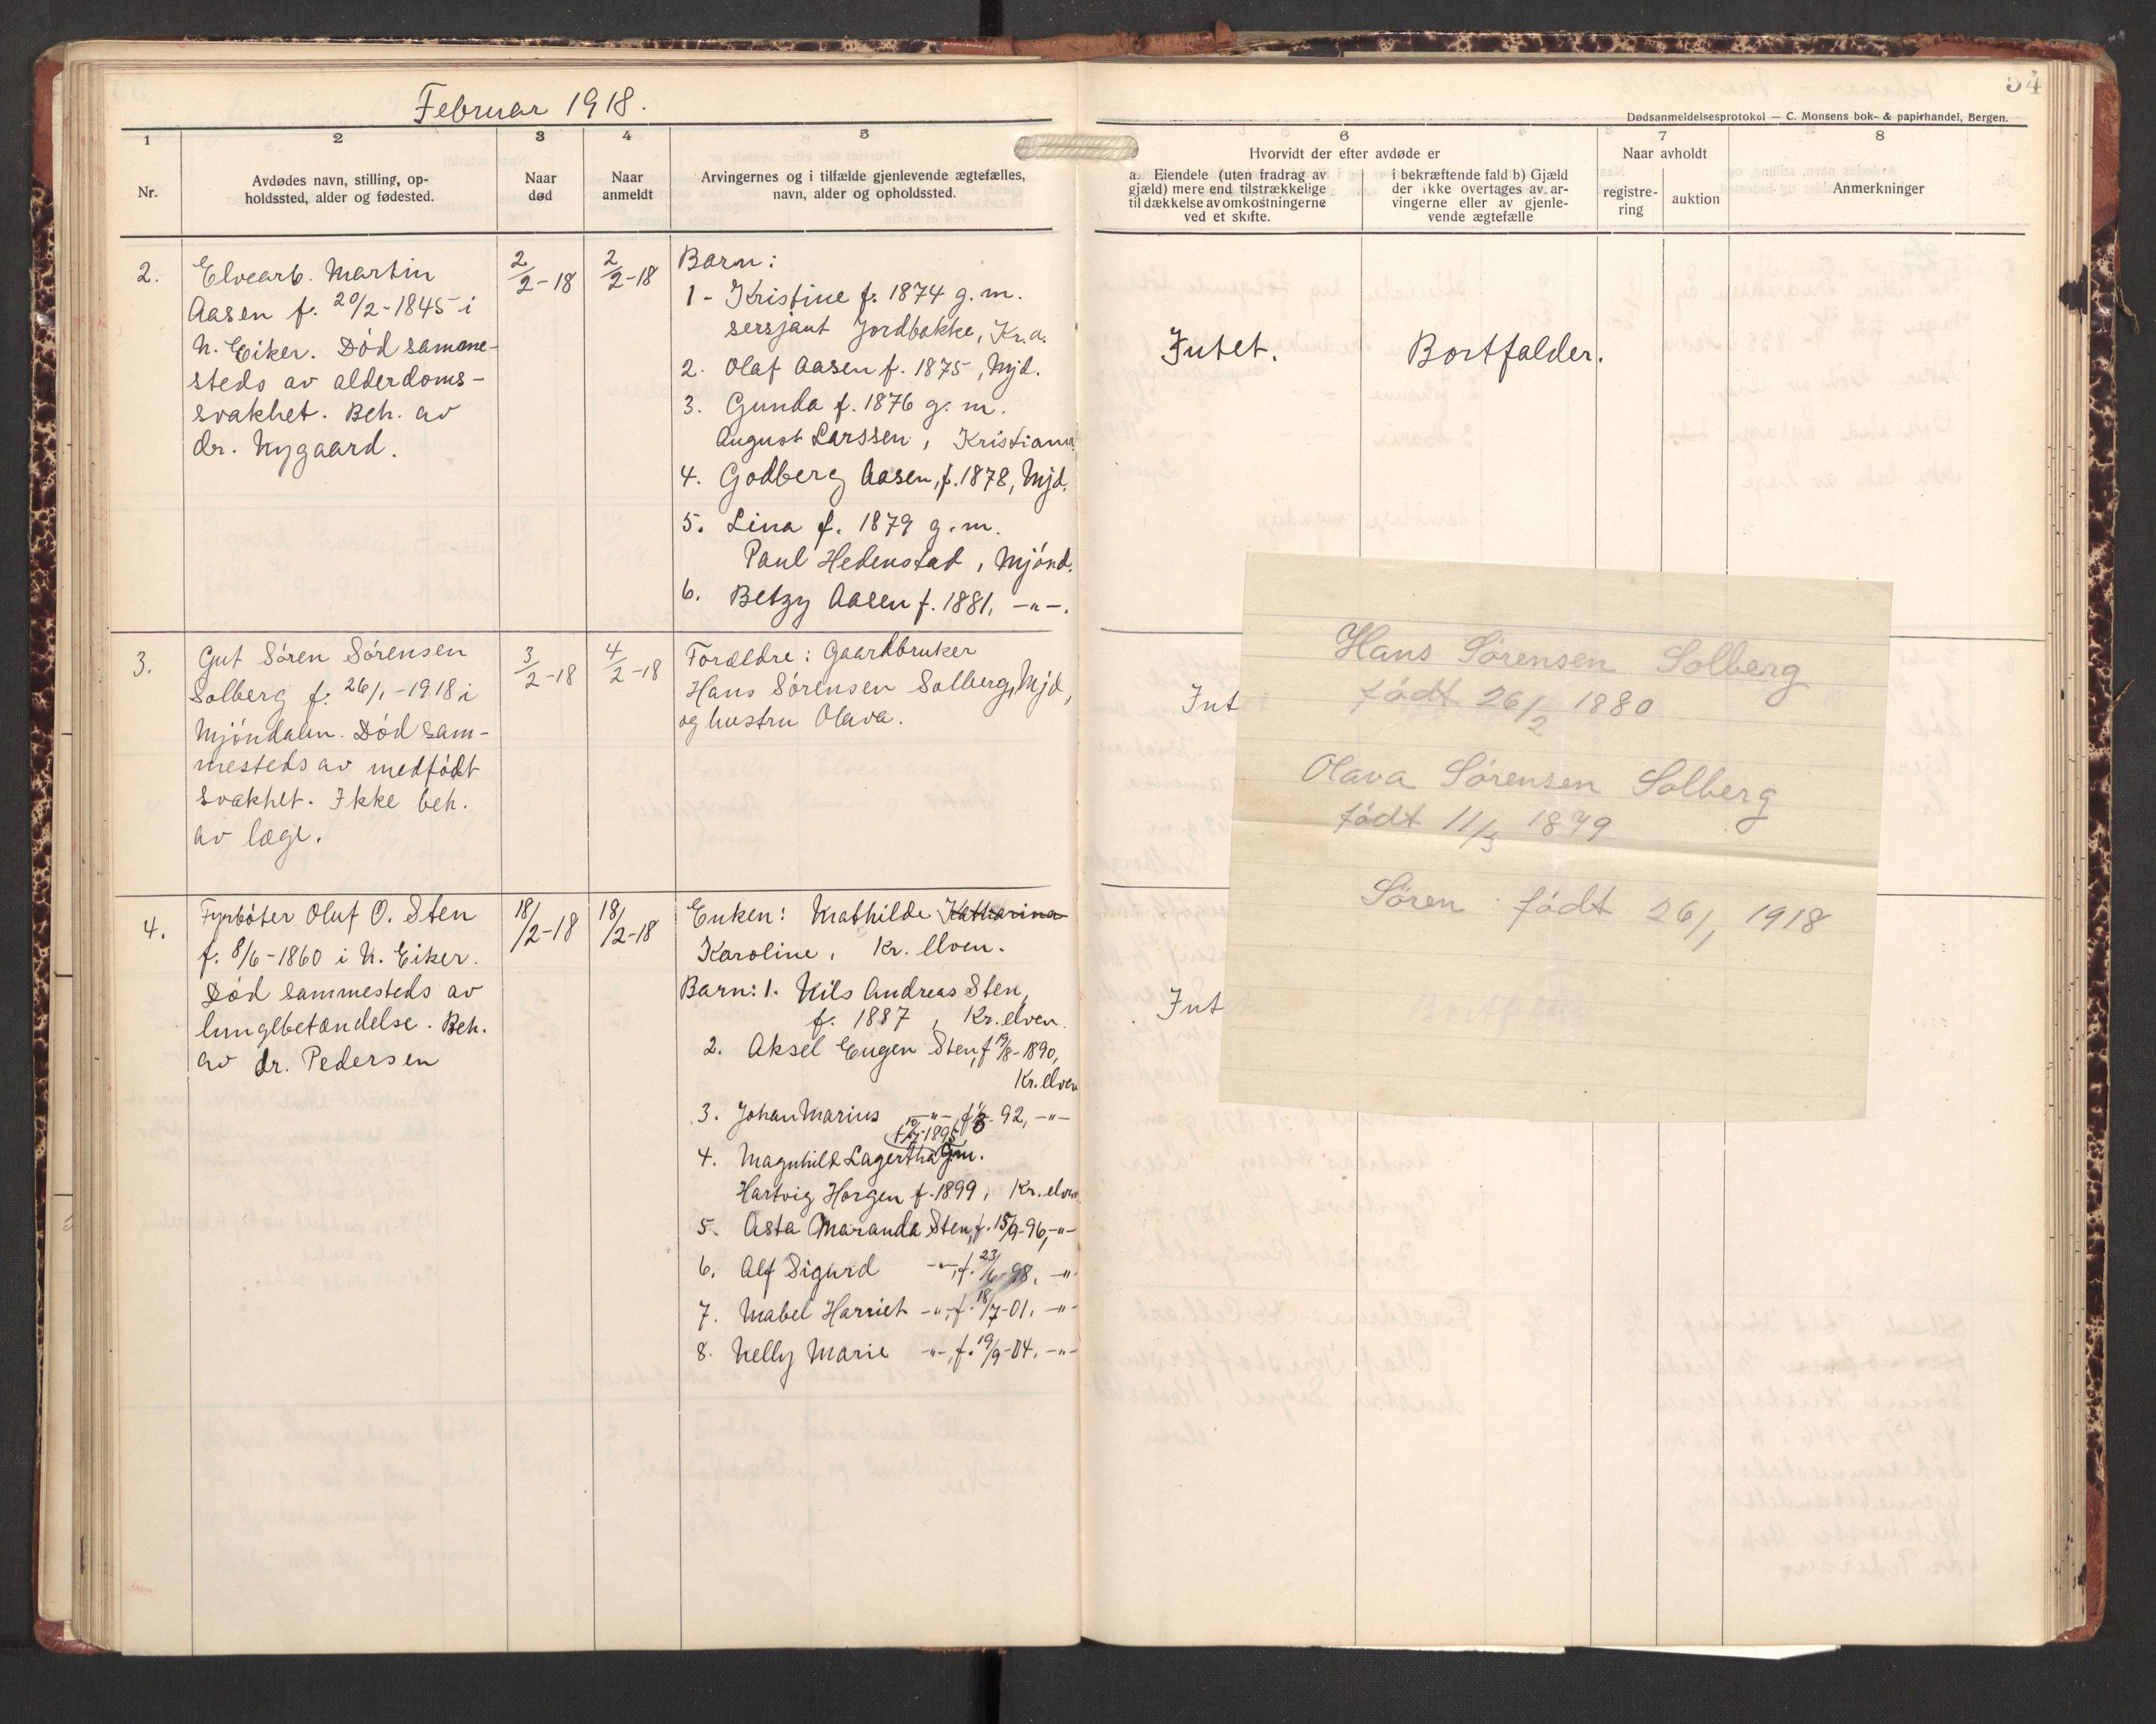 Februar 1918.
54
Dødsanmeldelsesprotokol — C. Monsens bok- & papirhandel, Bergen.
1
Nr.
2
Avdødes navn, stilling, op-
holdssted, alder og fødested.
3
Naar
død
4
Naar
anmeldt
5
Arvingernes og i tilfælde gjenlevende ægtefælles,
navn, alder og opholdssted.
6
Hvorvidt der efter avdøde er
a. Eiendele (uten fradrag av
gjæld) mere end tilstrækkelige
til dækkelse av omkostningerne
ved et skifte.
i bekræftende fald b) Gjæld
der ikke overtages av ar-
vingerne eller av gjenle-
vende ægtefælle
7
Naar avholdt
registre-
ring
auktion
8
Anmerkninger
2.
Elvearb. Martin
Aasen f. 20/2-1845 i
N. Eiker. Død samme-
steds av alderdoms-
svakhet. Beh. av
dr. Nygaard.
2/2-18
2/2-18
Barn:
1- Kristine f. 1874 g. m.
sersjant Jordbakke, Kr.a.
2. Olaf Aasen f. 1875, Mjd.
3. Gunda f. 1876 g. m.
August Larssen, Kristiania
4. Godberg Aasen, f. 1878, Mjd.
5. Lina f. 1879 g. m.
Paul Hedenstad, Mjónd.
6. Betzy Aasen f. 1881, -"-.
Intet.
Bortfalder.
3.
Gut Sóren Sórensen
Solberg f. 26/1-1918 i
Mjóndalen. Død sam-
mesteds av medfódt
svakhet. Ikke beh.
av læge.
3/2-18
4/2-18
Forældre: Gaardbruker
Hans Sórensen Solberg, Mjd,
og hustru Olava.
Int
4.
Fyrbóter Oluf O. Sten
f. 8/6-1860 i N. Eiker.
Død sammesteds av
lungebetændelse. Beh.
av dr. Pedersen
18/2-18
18/2-18
Enken: Mathilde Katharina
Karoline, Kr. elven.
Barn: 1. Nils Andreas Sten,
f. 1887, Kr. elven.
2. Aksel Eugen Sten, f 19/8-1890,
Kr. elven
3. Johan Marius -"-, f. 92, -"-
4. Magnhild Lagertha g.m.
Hartvig Horgen f. 1899, Kr. elven
5. Asta Maranda Sten, f. 15/9-96, -"-
6. Alf Sigurd -"-, f. 23/6-98, -"-
7. Mabel Harriet -"-, f. 18/7-01, -"-
8. Nelly Marie -"-, f. 19/9-04, -"-
Int
Hans Sórensen Solberg
fódt 26/2 1880
Olava Sórensen Solberg
fódt 11/5 1879
Sóren fódt 26/1 1918